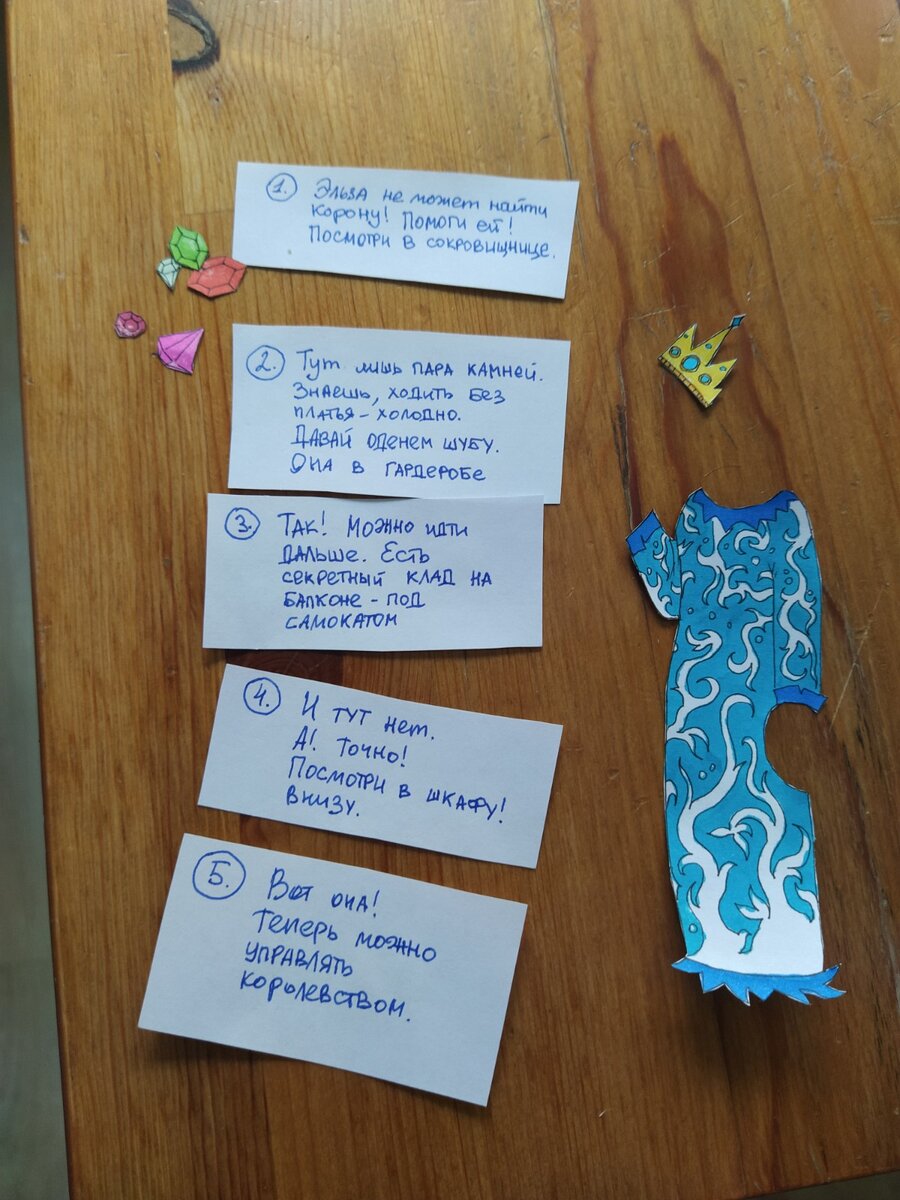 1. Эльза не может найти
корону! Помоги ей!
Посмотри в сокровищнице.
2. Тут лишь пара камней.
Знаешь, ходить без
платья - холодно.
Давай оденем шубу.
Она в гардеробе
3. Так! Можно идти
дальше. Есть
секретный клад на
балконе - под
самокатом
4. И тут нет.
А! Точно!
Посмотри в шкафу!
внизу.
5. Вот она!
Теперь можно
управлять
королевством.